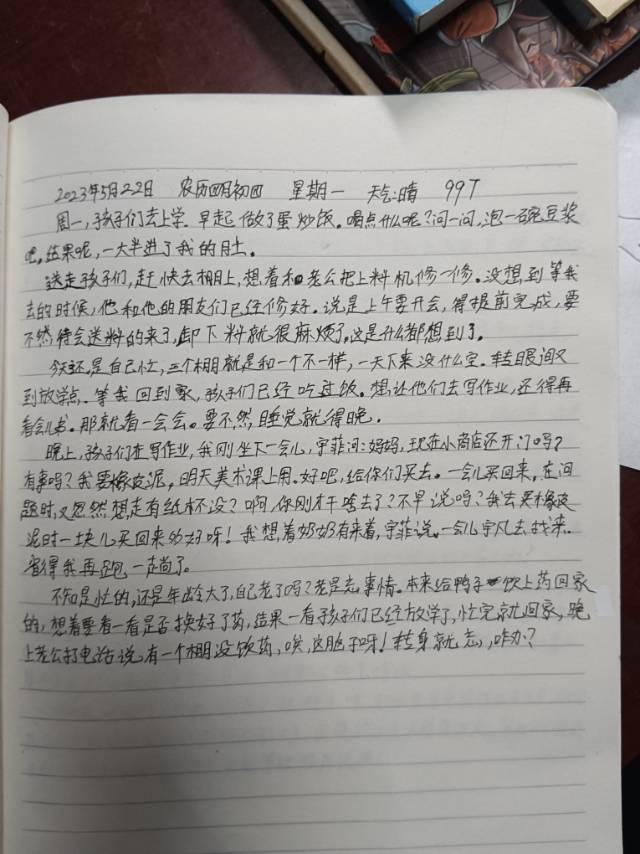 2023年5月22日 农历四月初四 星期一 天气:晴 99T
周一,孩子们去上学。早起做了蛋炒饭。喝点什么呢?问一问,泡一台碗豆浆
吧。结果呢,一大半进了我的肚。
送走孩子们,赶快去棚上,想着和老公把上料机修一修。没想到等我
去的时候,他和他的朋友们已经修好。说是上午要开会,得提前完成,要
不然待会送料的来了,卸下料就很麻烦了。这是什么都想到了。
今天还是自己忙,三个棚就是和一个不一样,一天下来没什么空。转眼间又
到放学点。等我回到家,孩子们已经吃过饭。想让他们去写作业,还得再
看会儿书。那就看一会会。要不然睡觉就得晚。
晚上,孩子们在写作业,我刚坐下一会儿,宇菲问:妈妈,现在小商店还开门吗?
有事吗?我要橡皮泥,明天美术课上用。好吧,给你们买去。一会儿买回来,在问
题时,又忽然想走有纸杯没?啊,你刚才干啥去了?不早说吗?我去买橡皮
泥时一块儿买回来的好呀!我想着奶奶有来着,宇菲说,一会儿宇凡去找来。
省得我再跑一趟了。
不知是忙的,还是年龄大了,自己老了吗?老是忘事情。本来给鸭子饮上药回家
的,想着要看一看是否换好了药,结果一看孩子们已经放学了,忙完就回家,晚
上老公打电话说有一个棚没饮药,唉,这脑子呀!转身就忘,咋办?